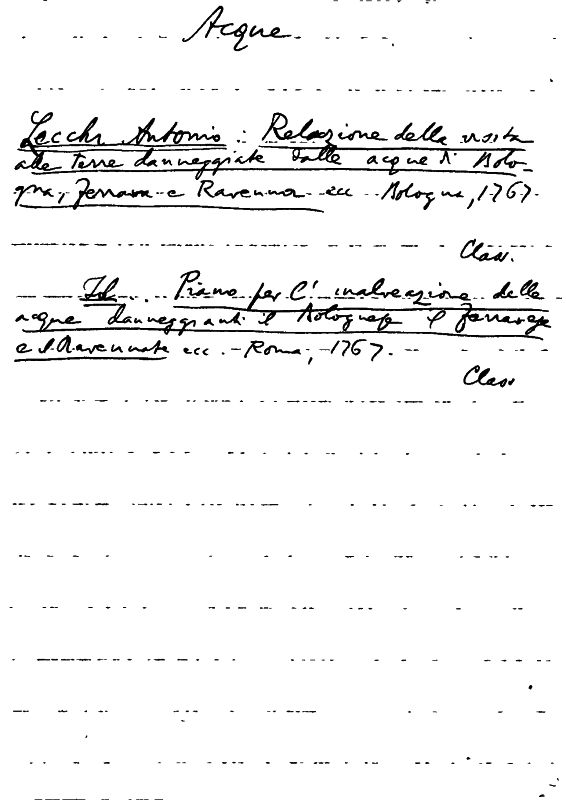 Acque
Lecchi Antonio : Relazione della visita
alle terre danneggiate dalle acque di Bolo-
gna, Ferrara e Ravenna ecc. Bologna, 1767.
Class.
Id. Piano per l'inalveazione delle
acque danneggianti il Bolognese il Ferrarese
e il Ravennate ecc. - Roma, 1767.
Class